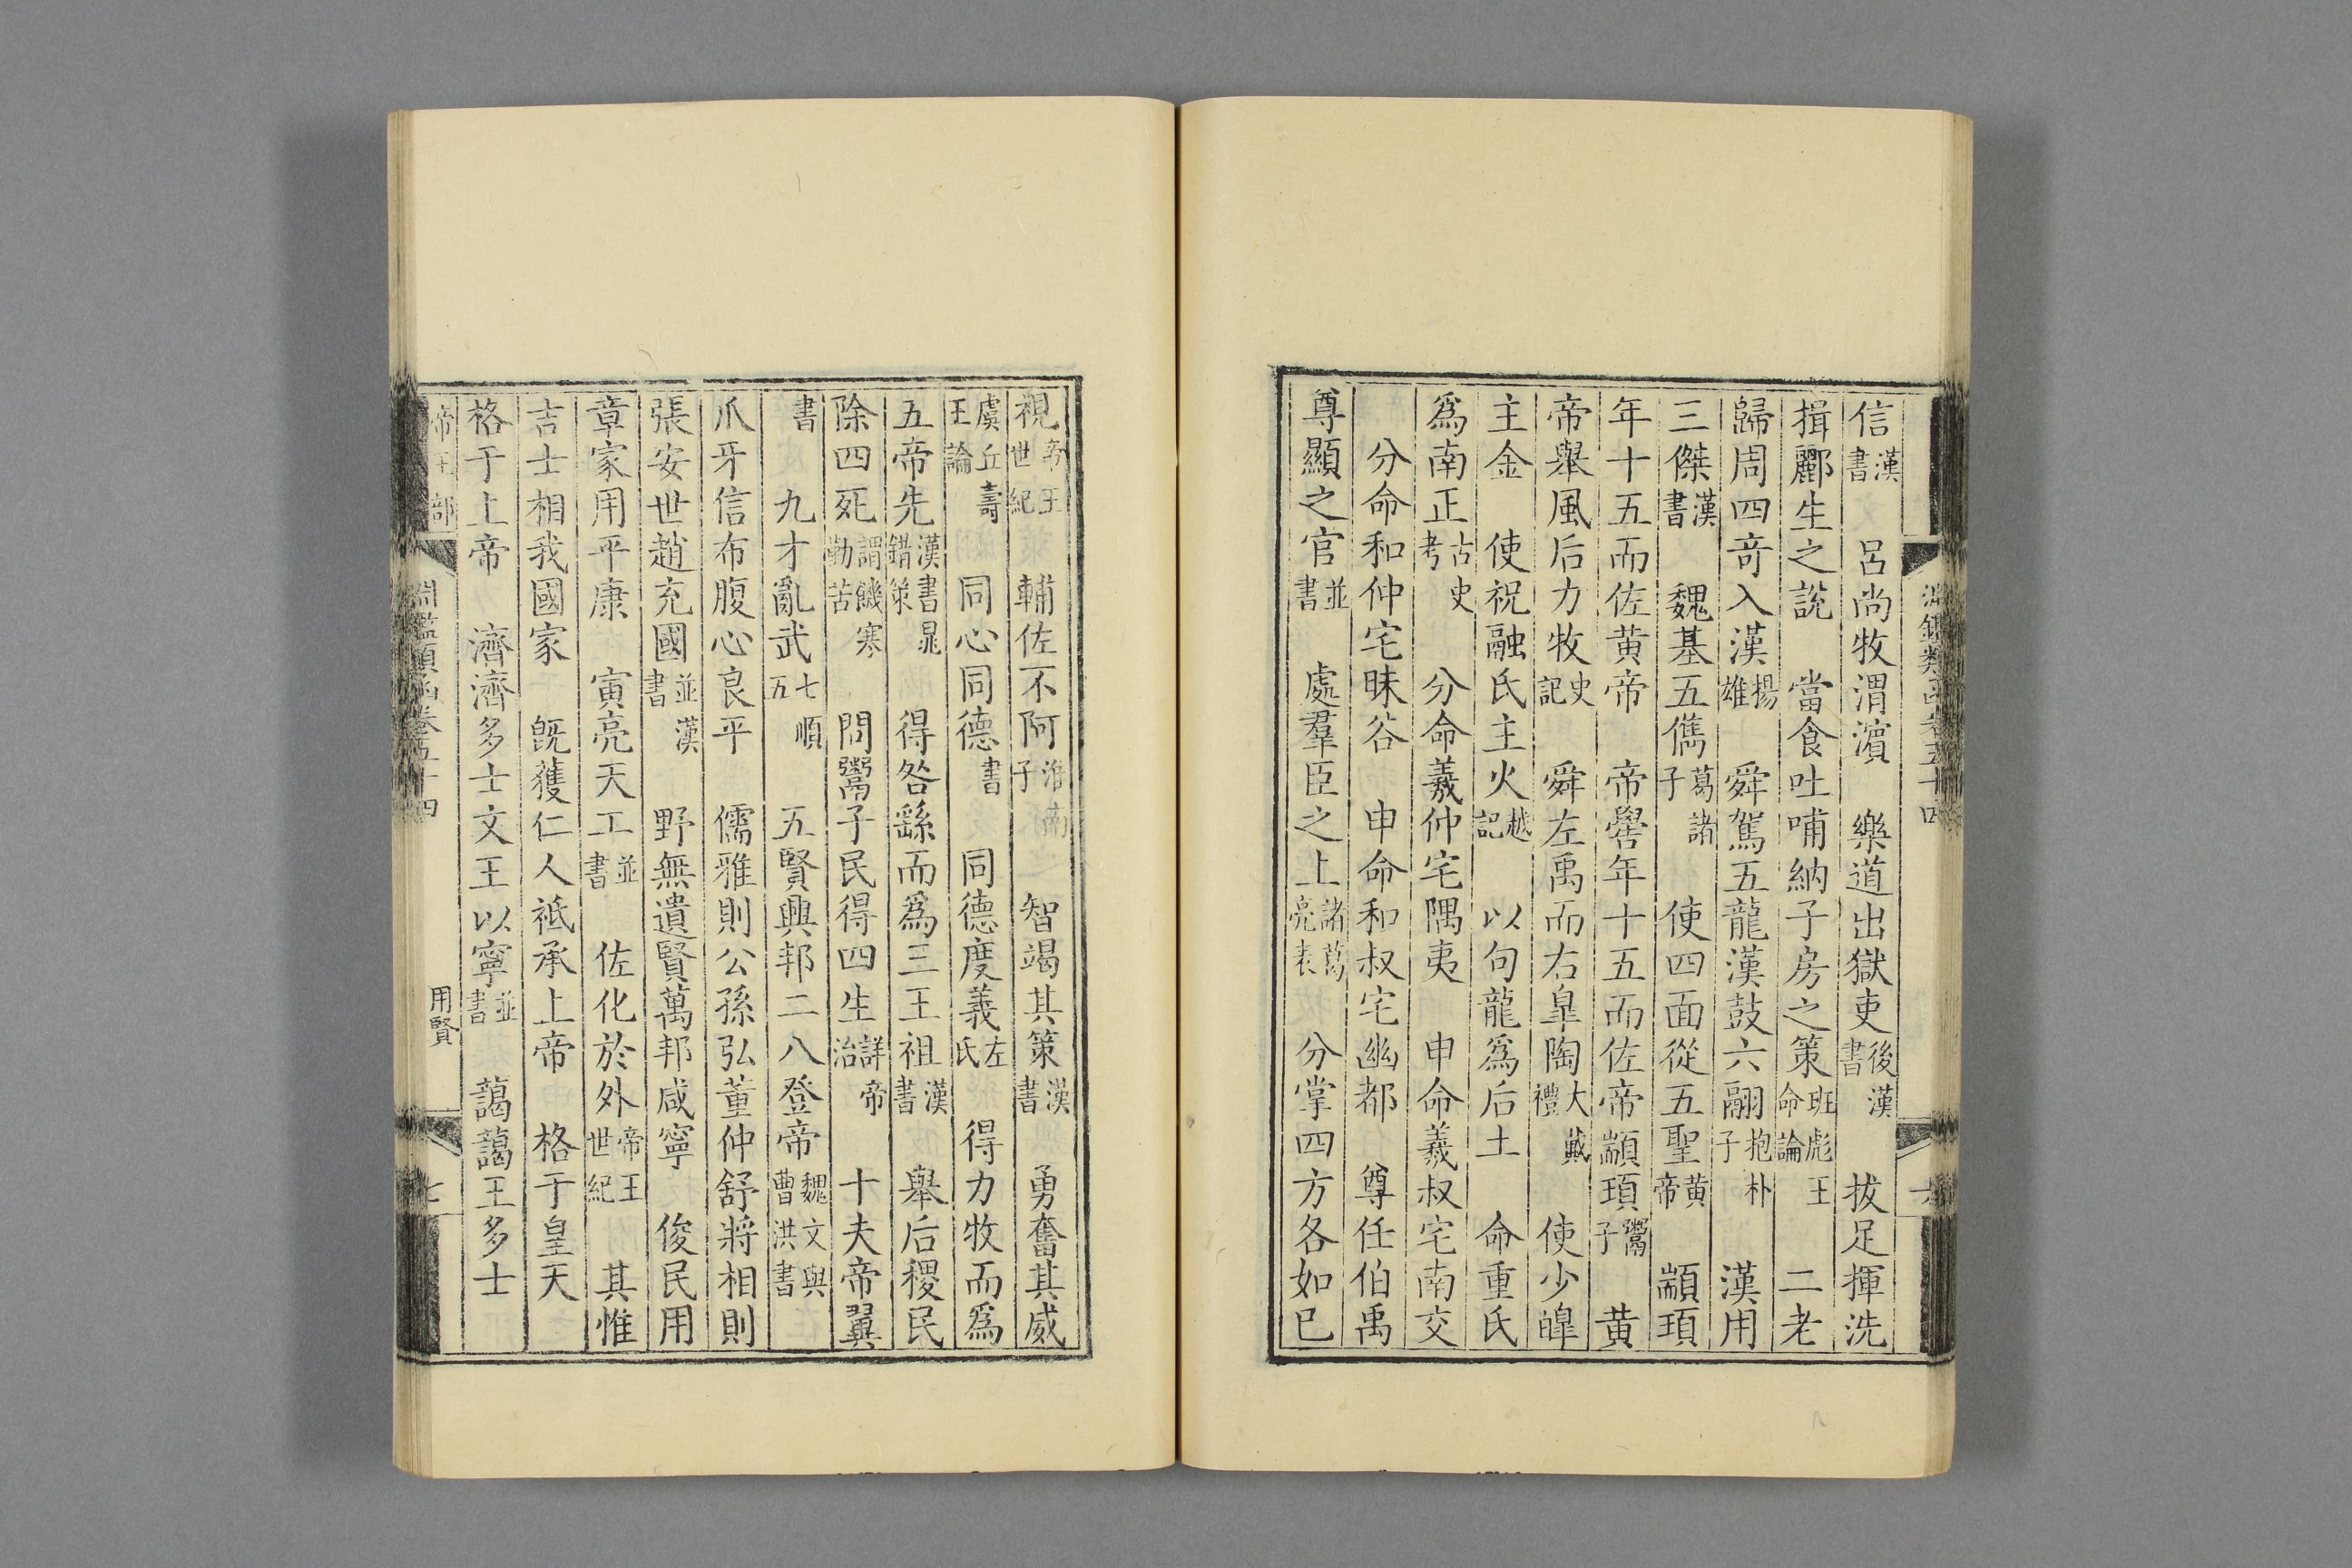 信漢書　呂尚牧渭濱　樂道出獄吏後漢書　拔足揮洗
揖酈生之說　當食吐哺納子房之策班彪王命論　二老
歸周四竒入漢揚雄　舜駕五龍漢鼓六翮抱朴子　漢用
三傑漢書　魏基五儁諸葛子　使四面從五聖黄帝　顓頊
年十五而佐黄帝　帝嚳年十五而佐帝顓頊鬻子　黄
帝舉風后力牧史記　舜左禹而右臯陶大戴禮　使少皥
主金　使祝融氏主火越記　以句龍爲后土　命重氏
爲南正古史考　分命羲仲宅隅夷　申命羲叔宅南交
分命和仲宅昧谷　申命和叔宅幽都　尊任伯禹
尊顯之官並書　處羣臣之上諸葛亮表　分掌四方各如已
視帝王世紀　輔佐不阿淮南子　智竭其策漢書　勇奮其威
虞丘壽王論　同心同德書　同德度義左氏　得力牧而爲
五帝先漢書晁錯策　得咎繇而爲三王祖漢書　舉后稷民
除四死謂饑寒勤苦　問鬻子民得四生詳帝治　十夫帝翼
書　九才亂武七順五　五賢興邦二八登帝魏文與曹洪書
爪牙信布腹心良平　儒雅則公孫弘董仲舒將相則
張安世趙充國並漢書　野無遺賢萬邦咸寧　俊民用
章家用平康　寅亮天工並書　佐化於外帝王世紀　其惟
吉士相我國家　旣獲仁人祗承上帝　格于皇天
格于上帝　濟濟多士文王以寧並書　藹藹王多士
帝王部　淵鑑類函卷五十四　用賢　七